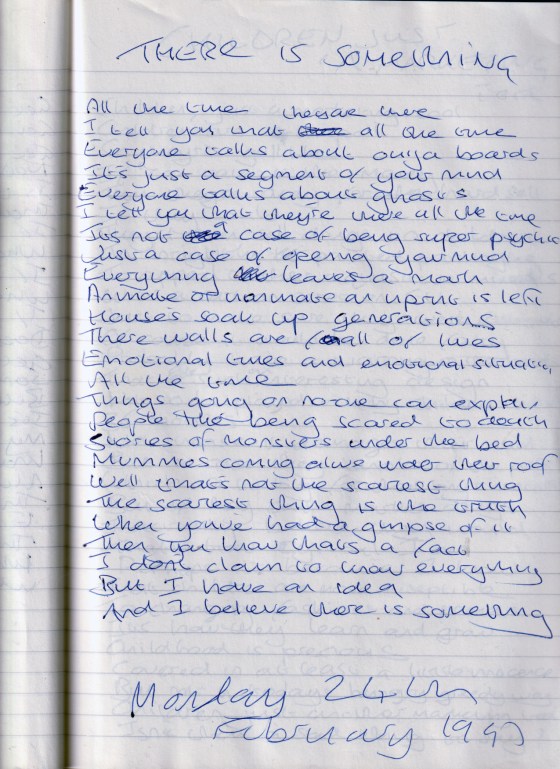 THERE IS SOMETHING
All the time they're there
I tell you that all the time
Everyone talks about ouija boards
It's just a segment of your mind
Everyone talks about ghosts
I tell you that they're there all the time
It's not a case of being super psychic
Just a case of opening your mind
Everything leaves a mark
Animate or inanimate an imprint is left
House's soak up generations
There walls are full of lives
Emotional times and emotional situation
All the time
Things going on no-one can explain
People being scared to death
Stories of monsters under the bed
Mummies coming alive under their roof
Well that's not the scariest thing
The scariest thing is the truth
When you've had a glimpse of it
Then you know that's a fact
I don't claim to know everything
But I have an idea
And I believe there is something
Monday 24th
February 1997